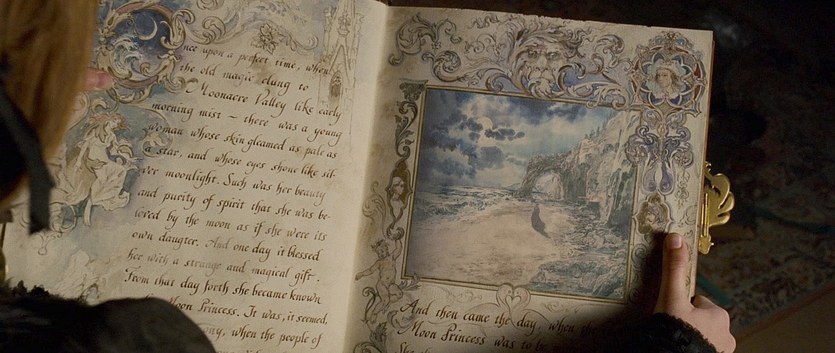 Once upon a perfect time, when
the old magic clung to
Moonacre Valley like early
morning mist – there was a young
woman whose skin gleamed as pale as
a star, and whose eyes shone like sil-
ver moonlight. Such was her beauty
and purity of spirit that she was be-
loved by the moon as if she were its
own daughter. And one day it blessed
her with a strange and magical gift.
From that day forth she became known
Moon Princess. It was, it seemed,
when the people of
And then came the day, when
Moon Princess was to
She